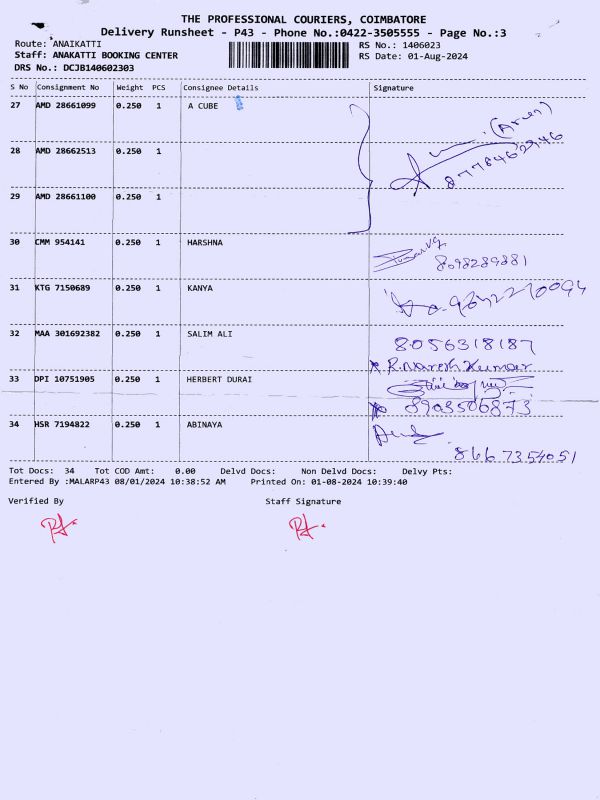 THE PROFESSIONAL COURIERS, COIMBATORE
Delivery Runsheet - P43 - Phone No.:0422-3505555 - Page No.:3
Route: ANAIKATTI RS No.: 1406023
Staff: ANAKATTI BOOKING CENTER RS Date: 01-Aug-2024
DRS No.: DCJB140602303
S No Consignment No Weight PCS Consignee Details Signature
27 AMD 28661099 0.250 1 A CUBE
(Arun)
28 AMD 28662513 0.250 1
29 AMD 28661100 0.250 1
30 CMM 954141 0.250 1 HARSHNA
8098289881
31 KTG 7150689 0.250 1 KANYA
32 MAA 301692382 0.250 1 SALIM ALI 8056318187
R. Naresh Kumar
33 DPI 10751905 0.250 1 HERBERT DURAI
8903506873
34 HSR 7194822 0.250 1 ABINAYA
8667354051
Tot Docs: 34 Tot COD Amt: 0.00 Delvd Docs: Non Delvd Docs: Delvy Pts:
Entered By :MALARP43 08/01/2024 10:38:52 AM Printed On: 01-08-2024 10:39:40
Verified By Staff Signature